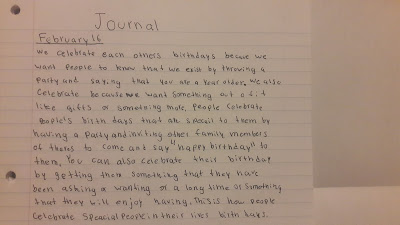 Journal
February 16
We celebrate each others birthdays becuse we
want people to know that we exist by throwing a
party and saying that you are a year older. We also
celebrate because we want something out of it
like gifts or something more, people celebrate
people's birth days that are specail to them by
having a party and inviting other family members
of theres to come and say "happy birthday" to
them. You can also celebrate their birthday
by getting them something that they have
been asking a wanting or a long time or something
that they will enjoy having. This is how people
celebrate speacial people in their lives birth days.